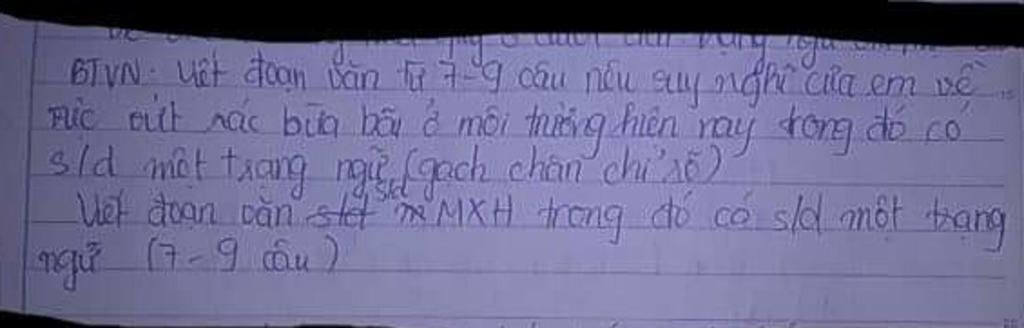 BTVN: Viết đoạn văn từ 7-9 câu nêu suy nghĩ của em về
việc vứt rác bừa bãi ở môi trường hiện nay trong đó có
s/d một trạng ngữ (gạch chân chỉ rõ)
Viết đoạn văn sd MXH trong đó có s/d một trạng
ngữ (7-9 câu)